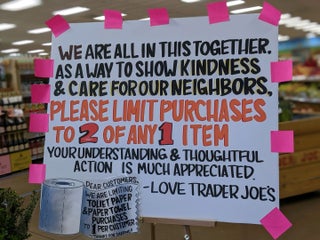 WE ARE ALL IN THIS TOGETHER.
AS A WAY TO SHOW KINDNESS
& CARE FOR OUR NEIGHBORS,
PLEASE LIMIT PURCHASES
TO 2 OF ANY 1 ITEM
YOUR UNDERSTANDING & THOUGHTFUL
ACTION IS MUCH APPRECIATED.
-LOVE TRADER JOE'S
DEAR CUSTOMERS,
WE ARE LIMITING
TOILET PAPER
& PAPER TOWEL
PURCHASES
TO 1 PER CUSTOMER.